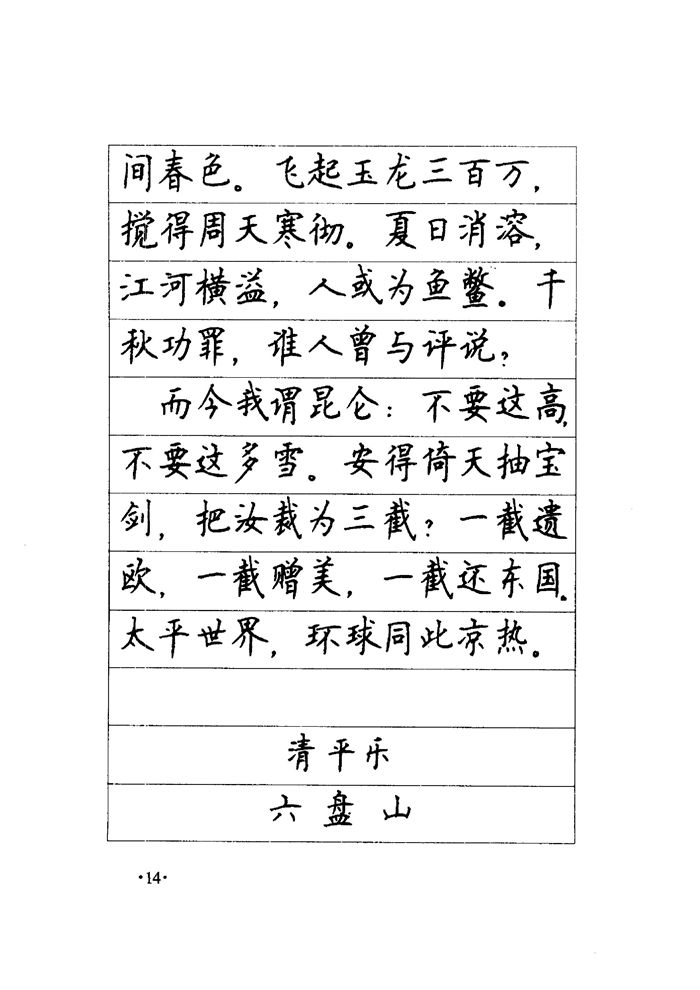 间春色。飞起玉龙三百万，
搅得周天寒彻。夏日消溶，
江河横溢，人或为鱼鳖。千
秋功罪，谁人曾与评说？
而今我谓昆仑：不要这高，
不要这多雪。安得倚天抽宝
剑，把汝裁为三截？一截遗
欧，一截赠美，一截还东国。
太平世界，环球同此凉热。
清平乐
六盘山
·14·